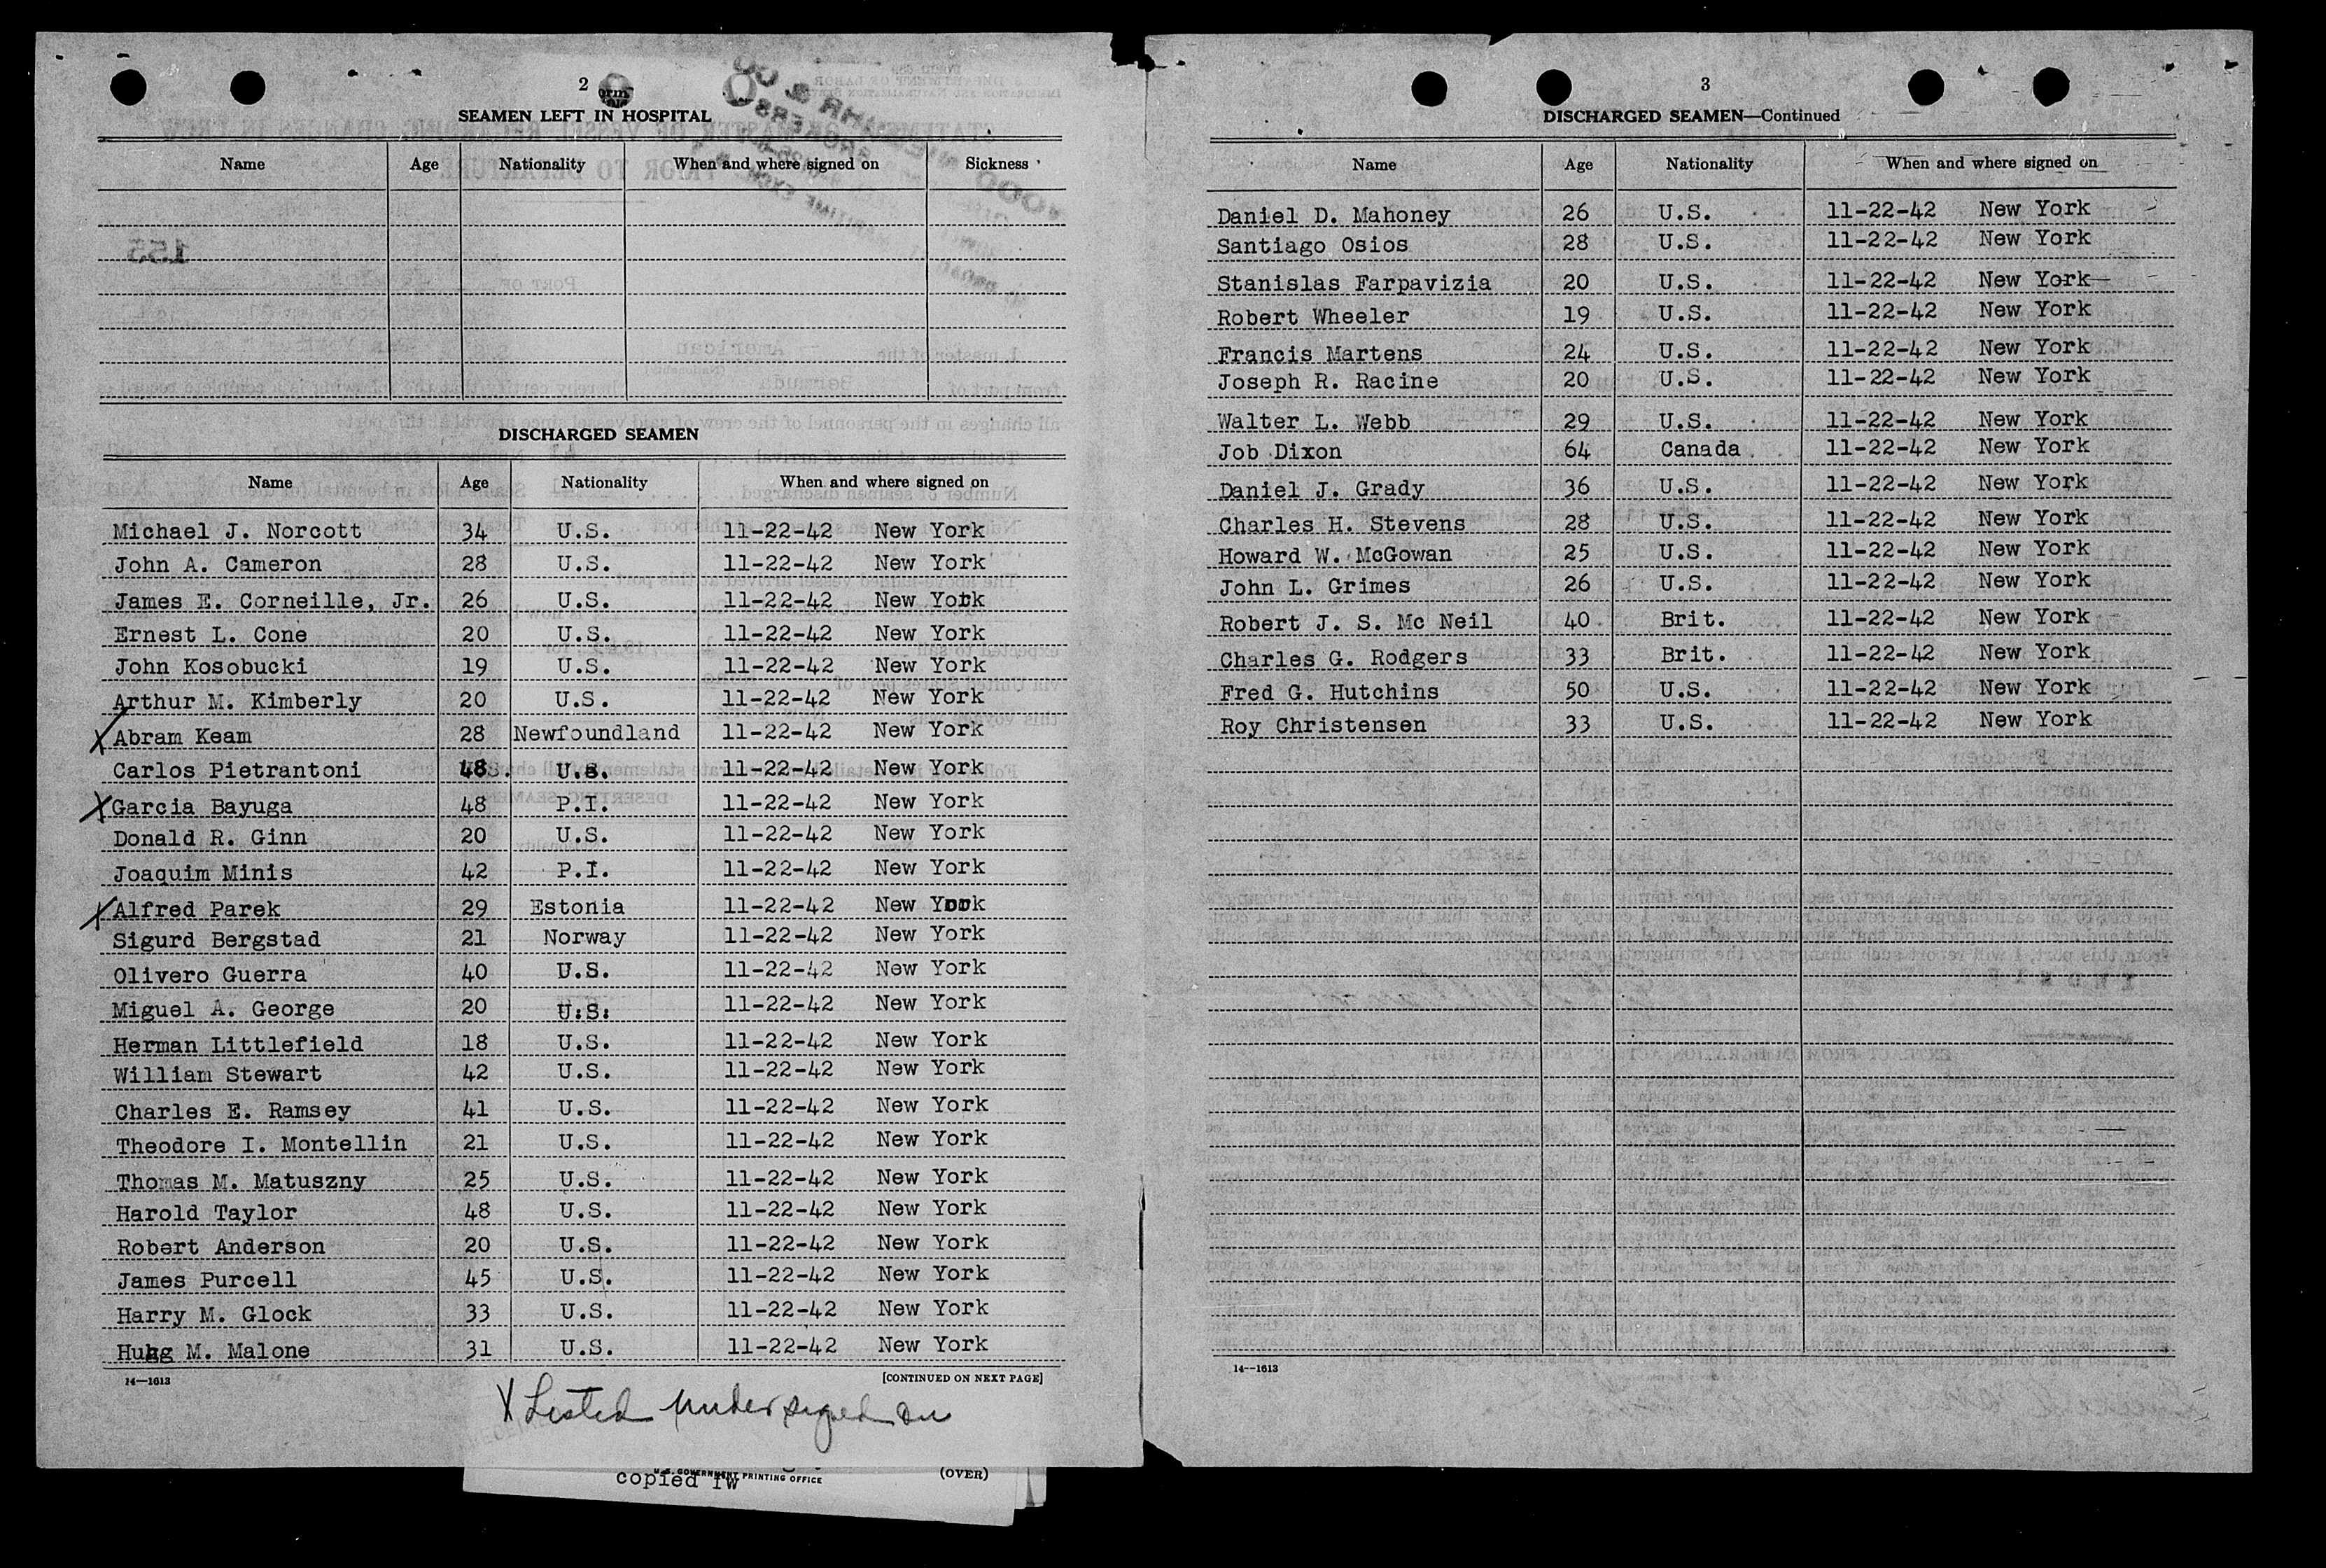 2
SEAMEN LEFT IN HOSPITAL
Name Age Nationality When and where signed on Sickness
155
DISCHARGED SEAMEN
Name Age Nationality When and where signed on
Michael J. Norcott 34 U.S. 11-22-42 New York
John A. Cameron 28 U.S. 11-22-42 New York
James E. Corneille, Jr. 26 U.S. 11-22-42 New York
Ernest L. Cone 20 U.S. 11-22-42 New York
John Kosobucki 19 U.S. 11-22-42 New York
Arthur M. Kimberly 20 U.S. 11-22-42 New York
X Abram Keam 28 Newfoundland 11-22-42 New York
Carlos Pietrantoni 48 U.S. 11-22-42 New York
X Garcia Bayuga 48 P.I. 11-22-42 New York
Donald R. Ginn 20 U.S. 11-22-42 New York
Joaquim Minis 42 P.I. 11-22-42 New York
X Alfred Parek 29 Estonia 11-22-42 New York
Sigurd Bergstad 21 Norway 11-22-42 New York
Olivero Guerra 40 U.S. 11-22-42 New York
Miguel A. George 20 U.S. 11-22-42 New York
Herman Littlefield 18 U.S. 11-22-42 New York
William Stewart 42 U.S. 11-22-42 New York
Charles E. Ramsey 41 U.S. 11-22-42 New York
Theodore I. Montellin 21 U.S. 11-22-42 New York
Thomas M. Matuszny 25 U.S. 11-22-42 New York
Harold Taylor 48 U.S. 11-22-42 New York
Robert Anderson 20 U.S. 11-22-42 New York
James Purcell 45 U.S. 11-22-42 New York
Harry M. Glock 33 U.S. 11-22-42 New York
M. Malone 31 U.S. 11-22-42 New York
14—1613 [CONTINUED ON NEXT PAGE]
X Listed under signed on
U.S. GOVERNMENT PRINTING OFFICE (OVER)
copied TW
3
DISCHARGED SEAMEN—Continued
Name Age Nationality When and where signed on
Daniel D. Mahoney 26 U.S. 11-22-42 New York
Santiago Osios 28 U.S. 11-22-42 New York
Stanislas Farpavizia 20 U.S. 11-22-42 New York
Robert Wheeler 19 U.S. 11-22-42 New York
Francis Martens 24 U.S. 11-22-42 New York
Joseph R. Racine 20 U.S. 11-22-42 New York
Walter L. Webb 29 U.S. 11-22-42 New York
Job Dixon 64 Canada 11-22-42 New York
Daniel J. Grady 36 U.S. 11-22-42 New York
Charles H. Stevens 28 U.S. 11-22-42 New York
Howard W. McGowan 25 U.S. 11-22-42 New York
John L. Grimes 26 U.S. 11-22-42 New York
Robert J. S. Mc Neil 40 Brit. 11-22-42 New York
Charles G. Rodgers 33 Brit. 11-22-42 New York
Fred G. Hutchins 50 U.S. 11-22-42 New York
Roy Christensen 33 U.S. 11-22-42 New York
14—1613